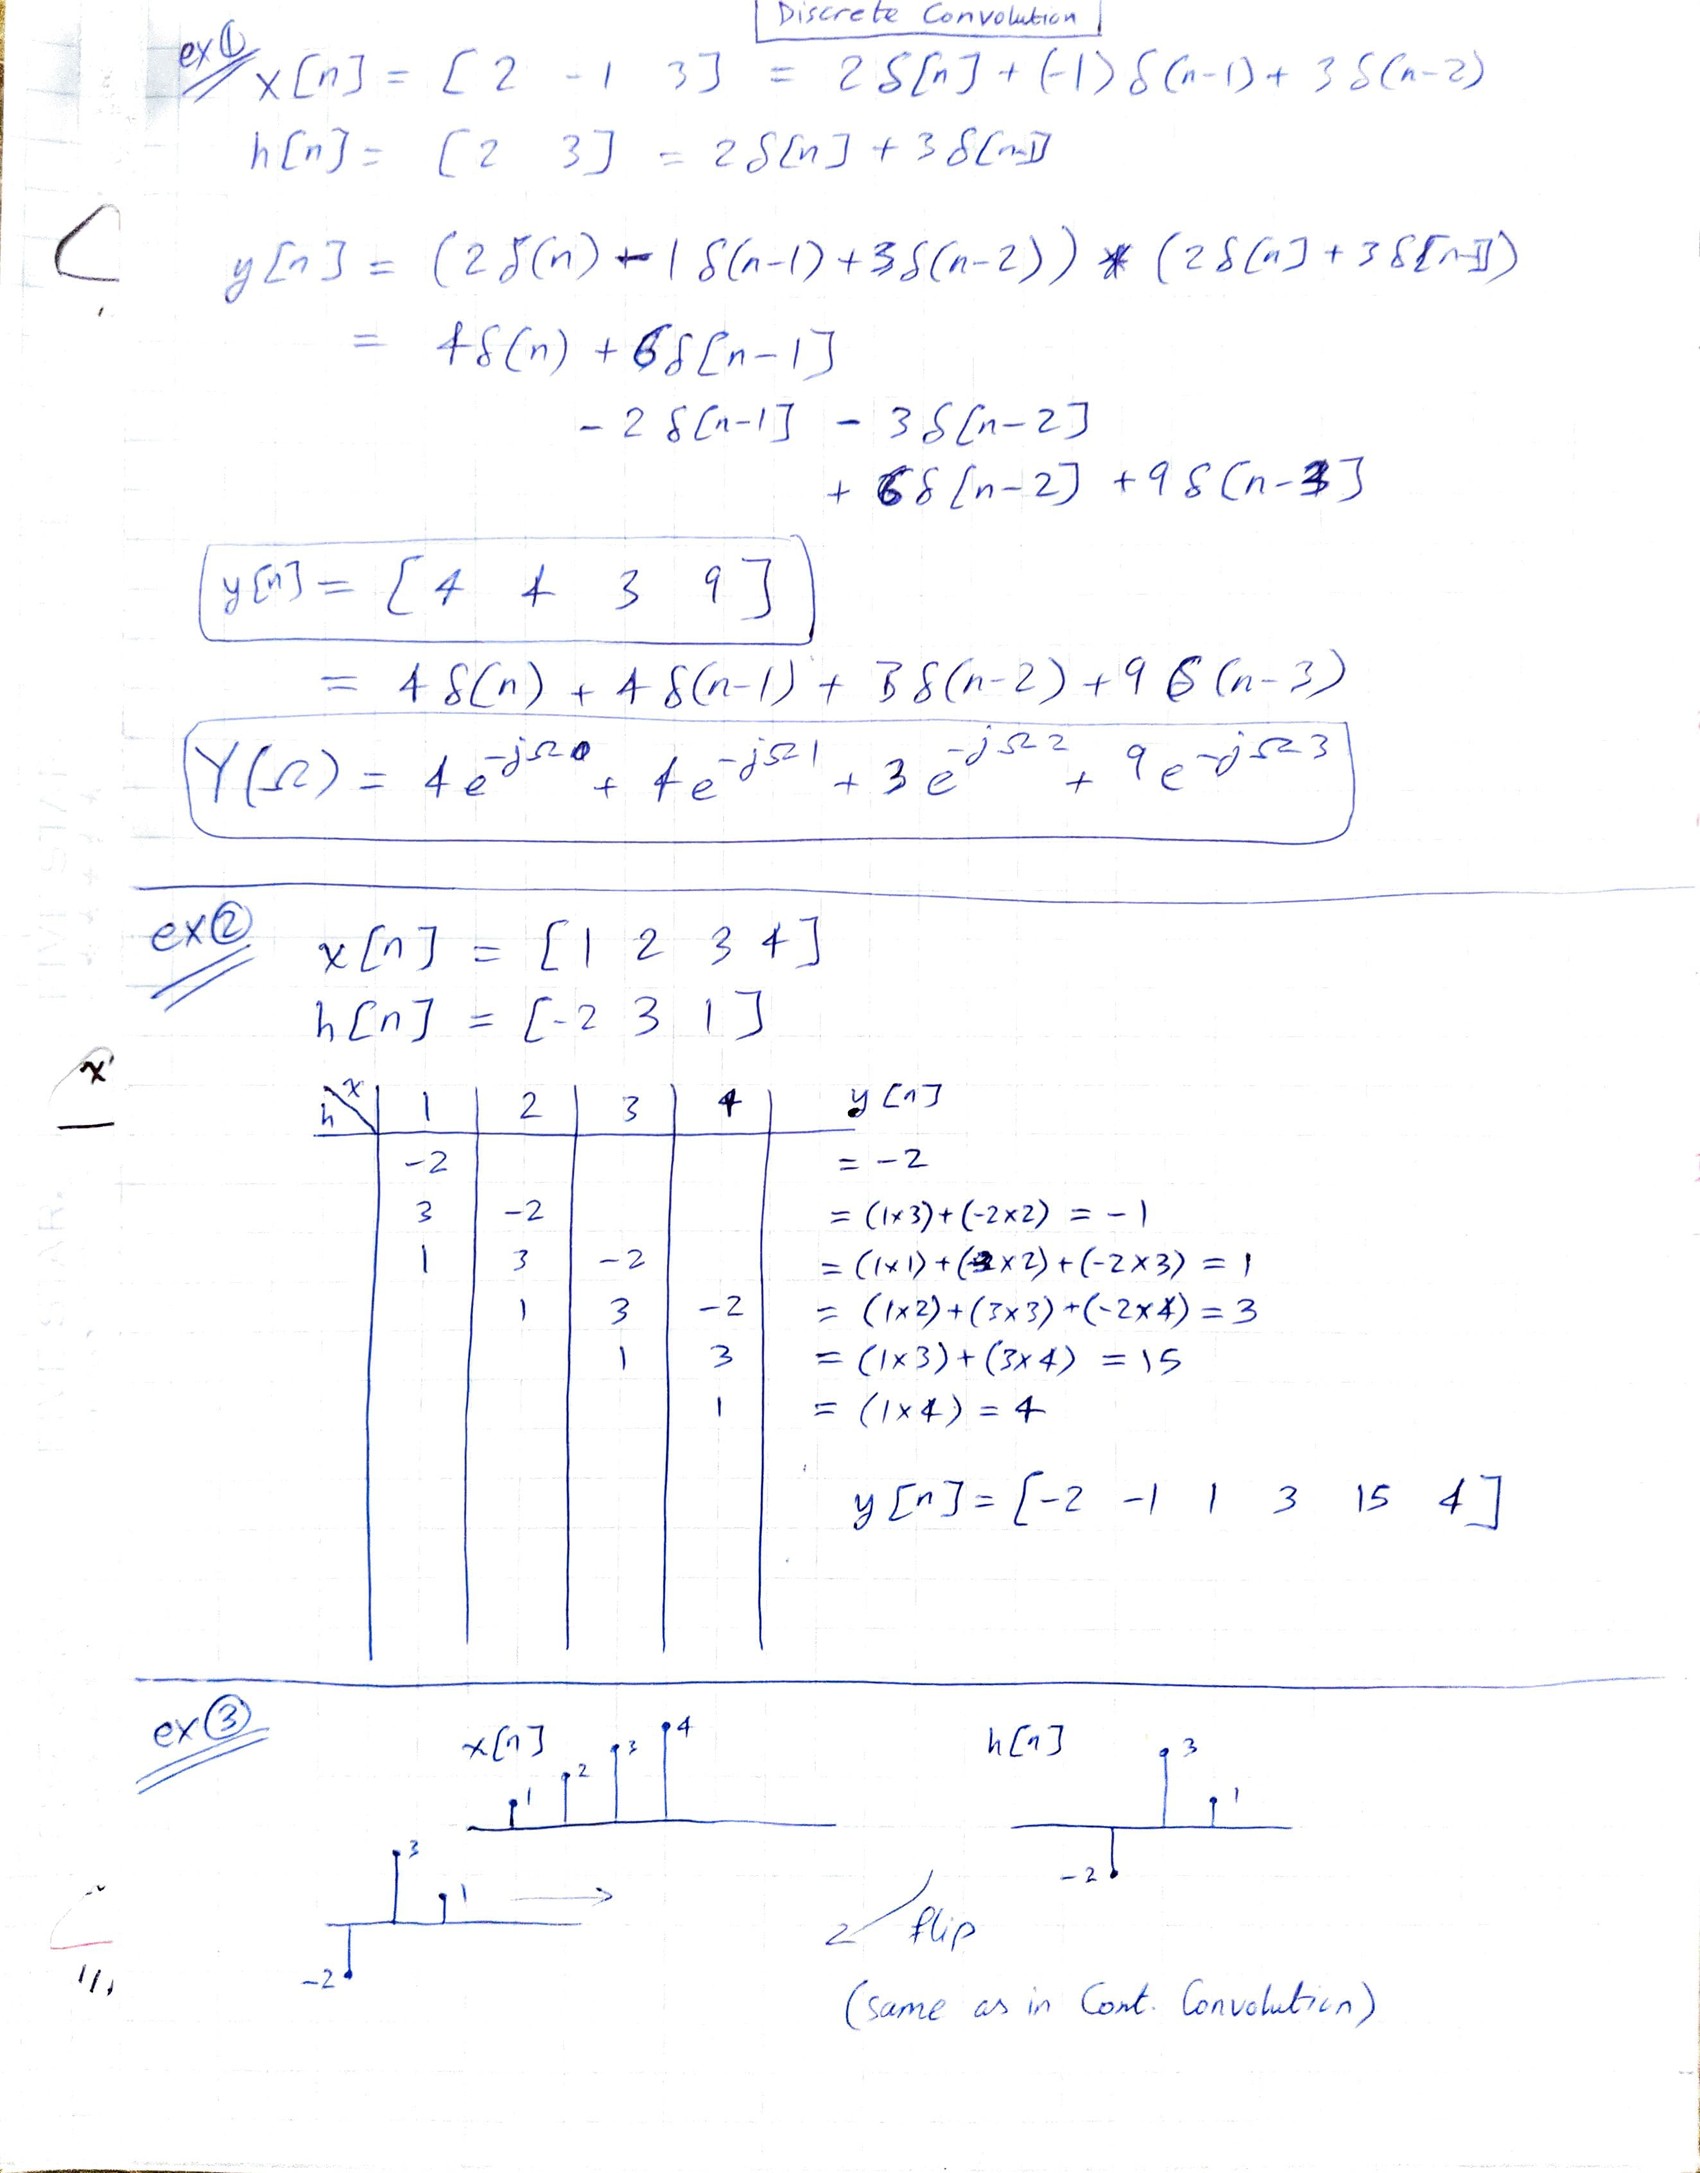 Discrete Convolution
ex① x[n] = [2 -1 3] = 2δ[n] + (-1)δ(n-1) + 3δ(n-2)
h[n] = [2 3] = 2δ[n] + 3δ[n-1]
y[n] = (2δ(n) - 1δ(n-1) + 3δ(n-2)) * (2δ[n] + 3δ[n-1])
= 4δ(n) + 6δ[n-1]
- 2δ[n-1] - 3δ[n-2]
+ 6δ[n-2] + 9δ[n-3]
y[n] = [4 4 3 9]
= 4δ(n) + 4δ(n-1) + 3δ(n-2) + 9δ(n-3)
Y(Ω) = 4e^{-jΩ0} + 4e^{-jΩ1} + 3e^{-jΩ2} + 9e^{-jΩ3}
ex② x[n] = [1 2 3 4]
h[n] = [-2 3 1]
x
h x 1 2 3 4 y[n]
-2 = -2
3 -2 = (1×3)+(-2×2) = -1
1 3 -2 = (1×1)+(3×2)+(-2×3) = 1
1 3 -2 = (1×2)+(3×3)+(-2×4) = 3
1 3 = (1×3)+(3×4) = 15
1 = (1×4) = 4
y[n] = [-2 -1 1 3 15 4]
ex③
x[n] 1 2 3 4
h[n] -2 3 1
-2 3 1
flip
(same as in Cont. Convolution)